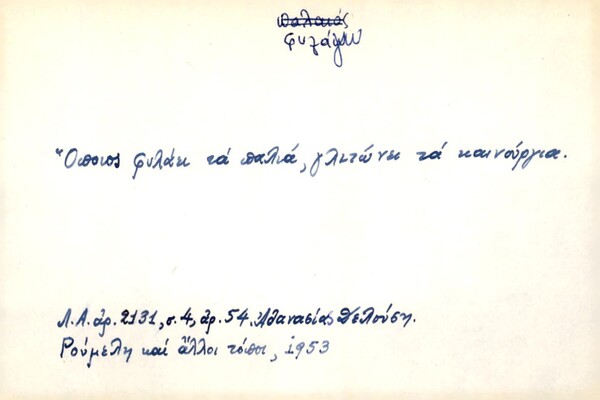 παλαιός
φυλάγω
Ὅποιος φυλάει τά παλιά, γλιτώνει τά καινούργια.
Λ.Α. ἀρ. 2131, σ. 4, ἀρ. 54. Ἀθανασίας Δελούση.
Ρούμελη καί ἄλλοι τόποι, 1953